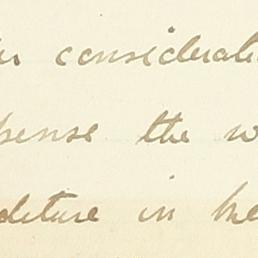 er consideratio
pense the w
diture in the